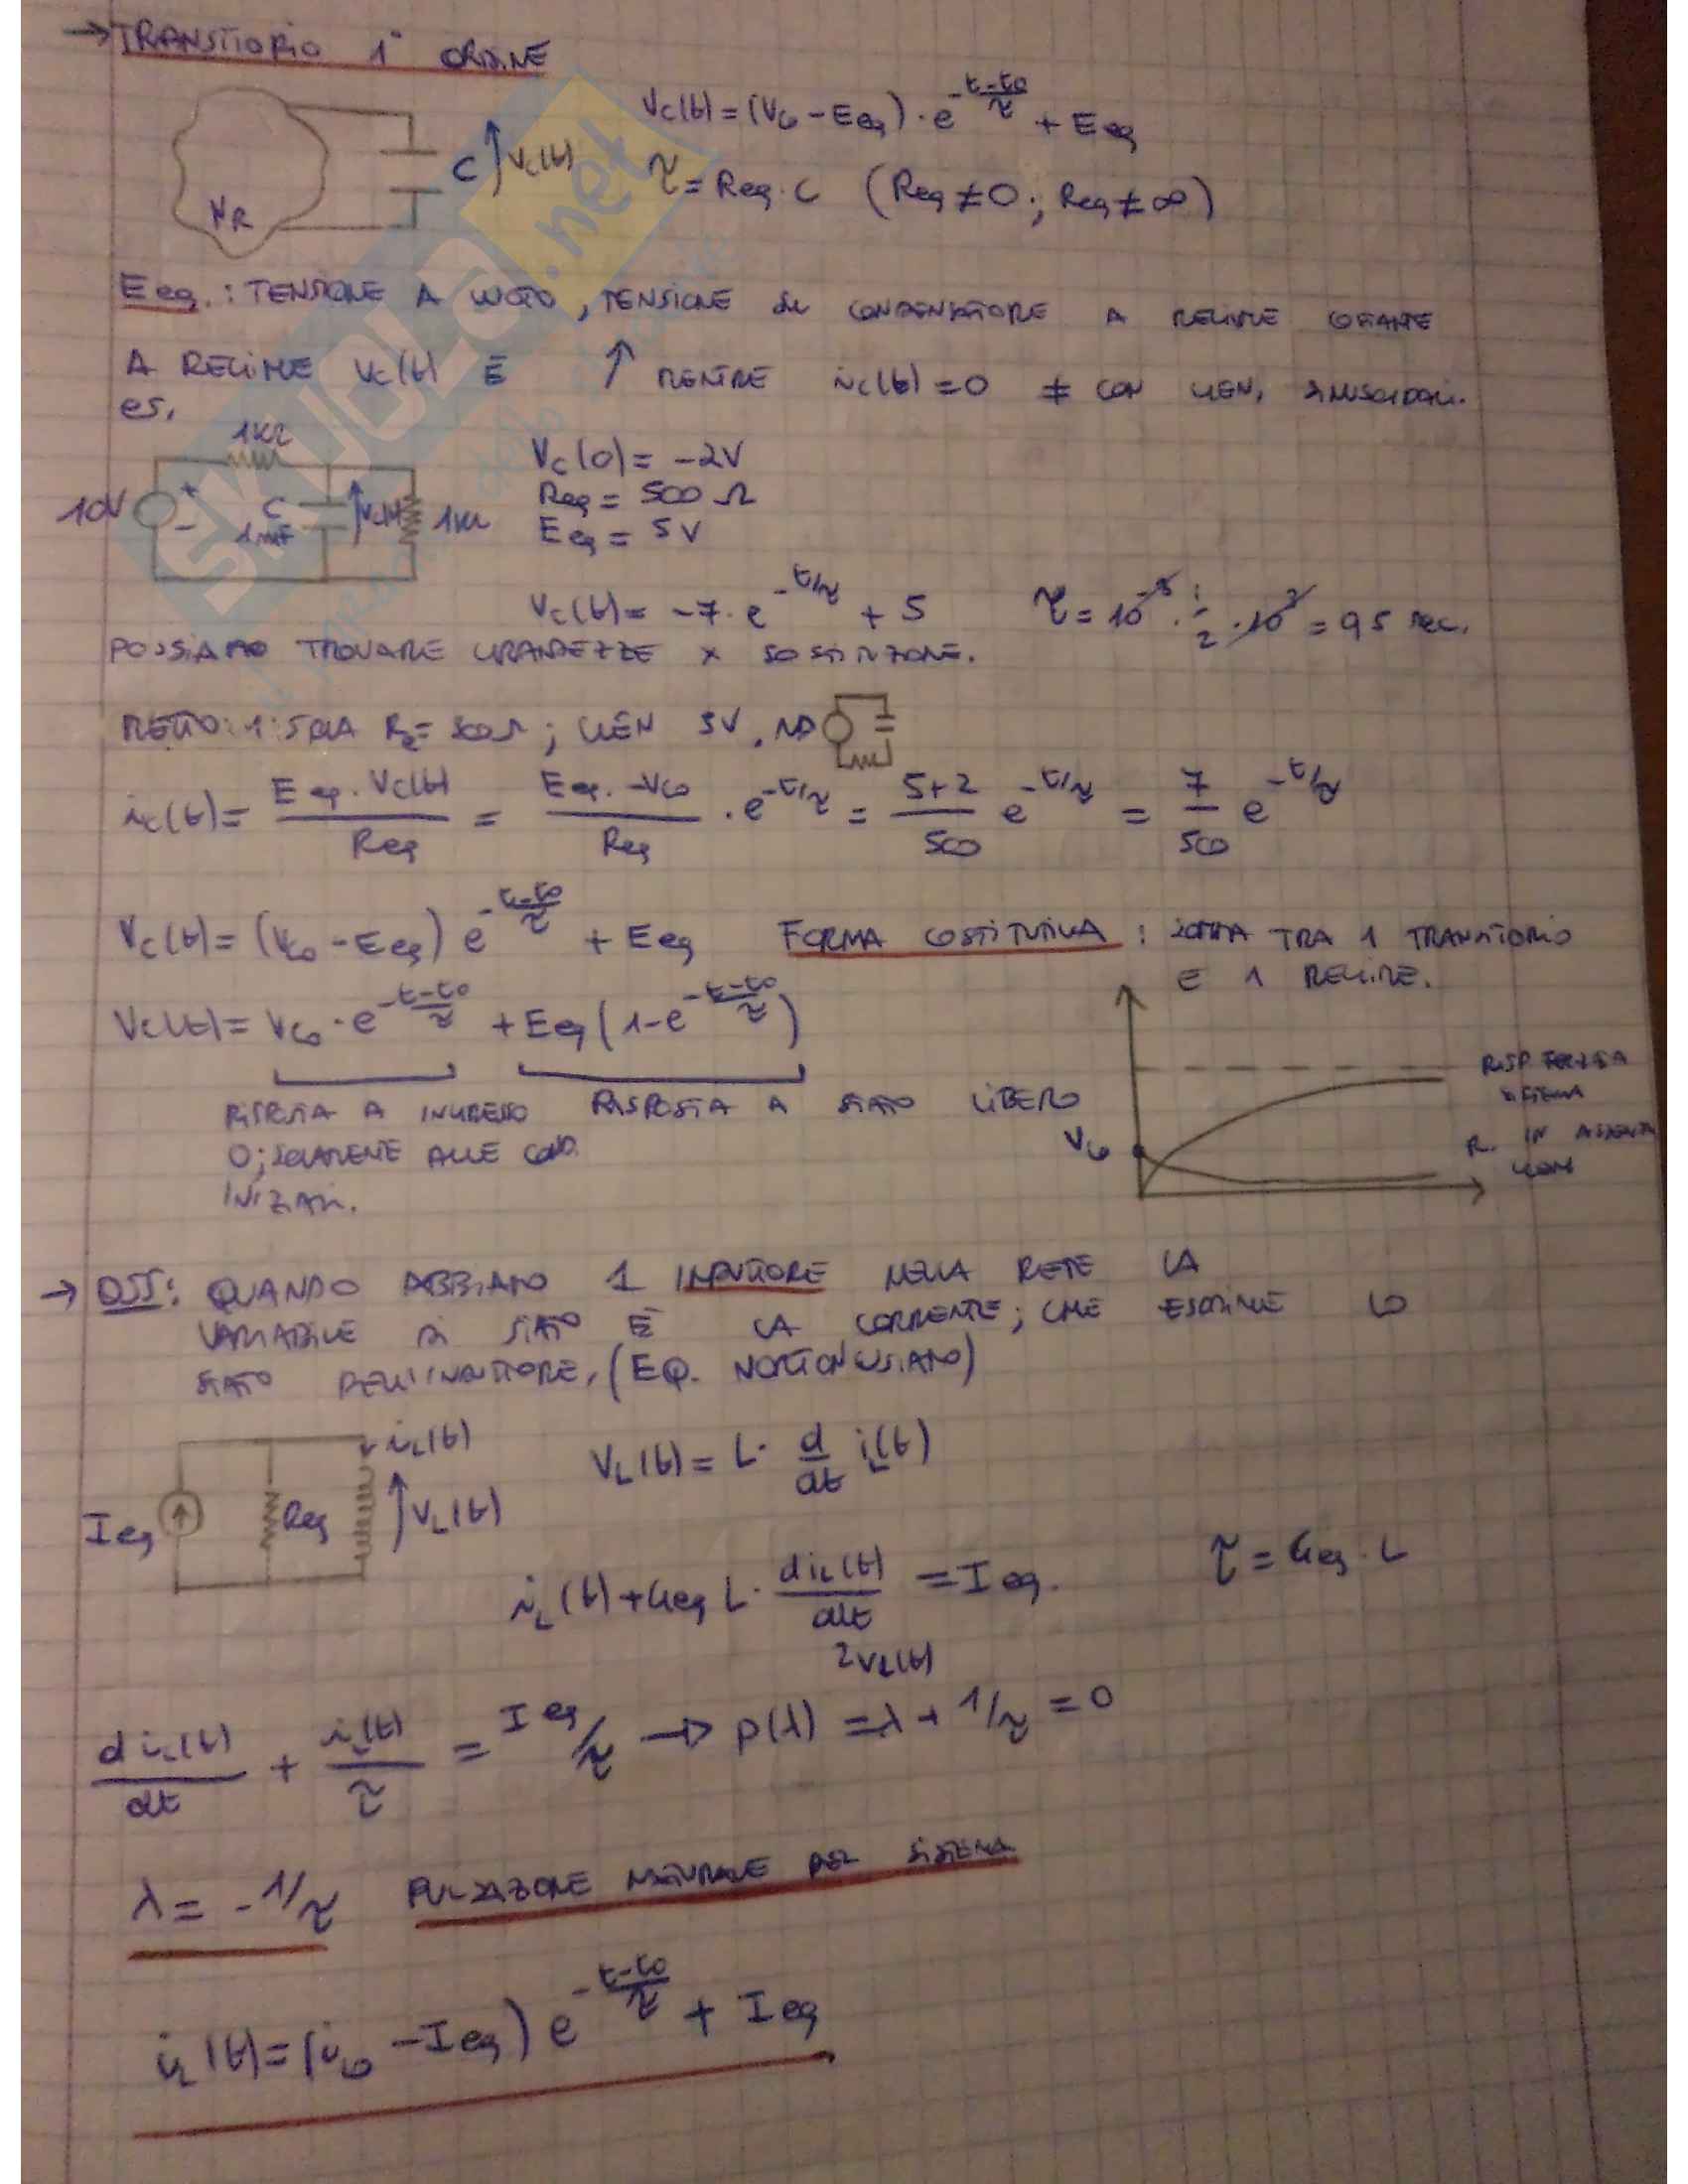 → TRANSITORIO 1° ORDINE
Vc(t) = (Vc0 - Eeq) · e^(-(t-t0)/τ) + Eeq
C Vc(t)
τ = Req · C (Req ≠ 0 ; Req ≠ ∞)
NR
Eeq. : TENSIONE A VUOTO, TENSIONE SU CONDENSATORE A REGIME COSTANTE
A REGIME Vc(t) È ↑ MENTRE ic(t) = 0 ≠ CON GEN. SINUSOIDALI.
es.
1KΩ
10V + - C 1mF Vc(t) 1KΩ
Vc(0) = -2V
Req = 500 Ω
Eeq = 5V
Vc(t) = -7 · e^(-t/τ) + 5 τ = 10^-3 · 1/2 · 10^3 = 0,5 sec.
POSSIAMO TROVARE GRANDEZZE x SOSTITUZIONE.
ic(t) = (Eeq. - Vc(t))/Req = (Eeq. - Vc0)/Req · e^(-t/τ) = (5+2)/500 e^(-t/τ) = 7/500 e^(-t/τ)
Vc(t) = (Vc0 - Eeq) e^(-(t-t0)/τ) + Eeq FORMA COSTITUTIVA : SOMMA TRA 1 TRANSITORIO
E 1 REGIME.
Vc(t) = Vc0 · e^(-(t-t0)/τ) + Eeq (1 - e^(-(t-t0)/τ))
RISPOSTA A INGRESSO RISPOSTA A STATO LIBERO
0; SOLAMENTE ALLE COND.
INIZIALI.
RISP. FORZATA
SISTEMA
Vc0
R. IN ASSENZA
→ OSS: QUANDO ABBIAMO 1 INDUTTORE NELLA RETE LA
VARIABILE DI STATO È LA CORRENTE; CHE ESPRIME LO
STATO DELL'INDUTTORE. (EQ. NORTONIANO)
iL(t)
Ieq Req VL(t)
VL(t) = L · d/dt iL(t)
iL(t) + Geq L · diL(t)/dt = Ieq. τ = Geq · L
diL(t)/dt + iL(t)/τ = Ieq/τ → p(λ) = λ + 1/τ = 0
λ = -1/τ PULSAZIONE NATURALE DEL SISTEMA
iL(t) = (iL0 - Ieq) e^(-(t-t0)/τ) + Ieq
SKUOLA.net